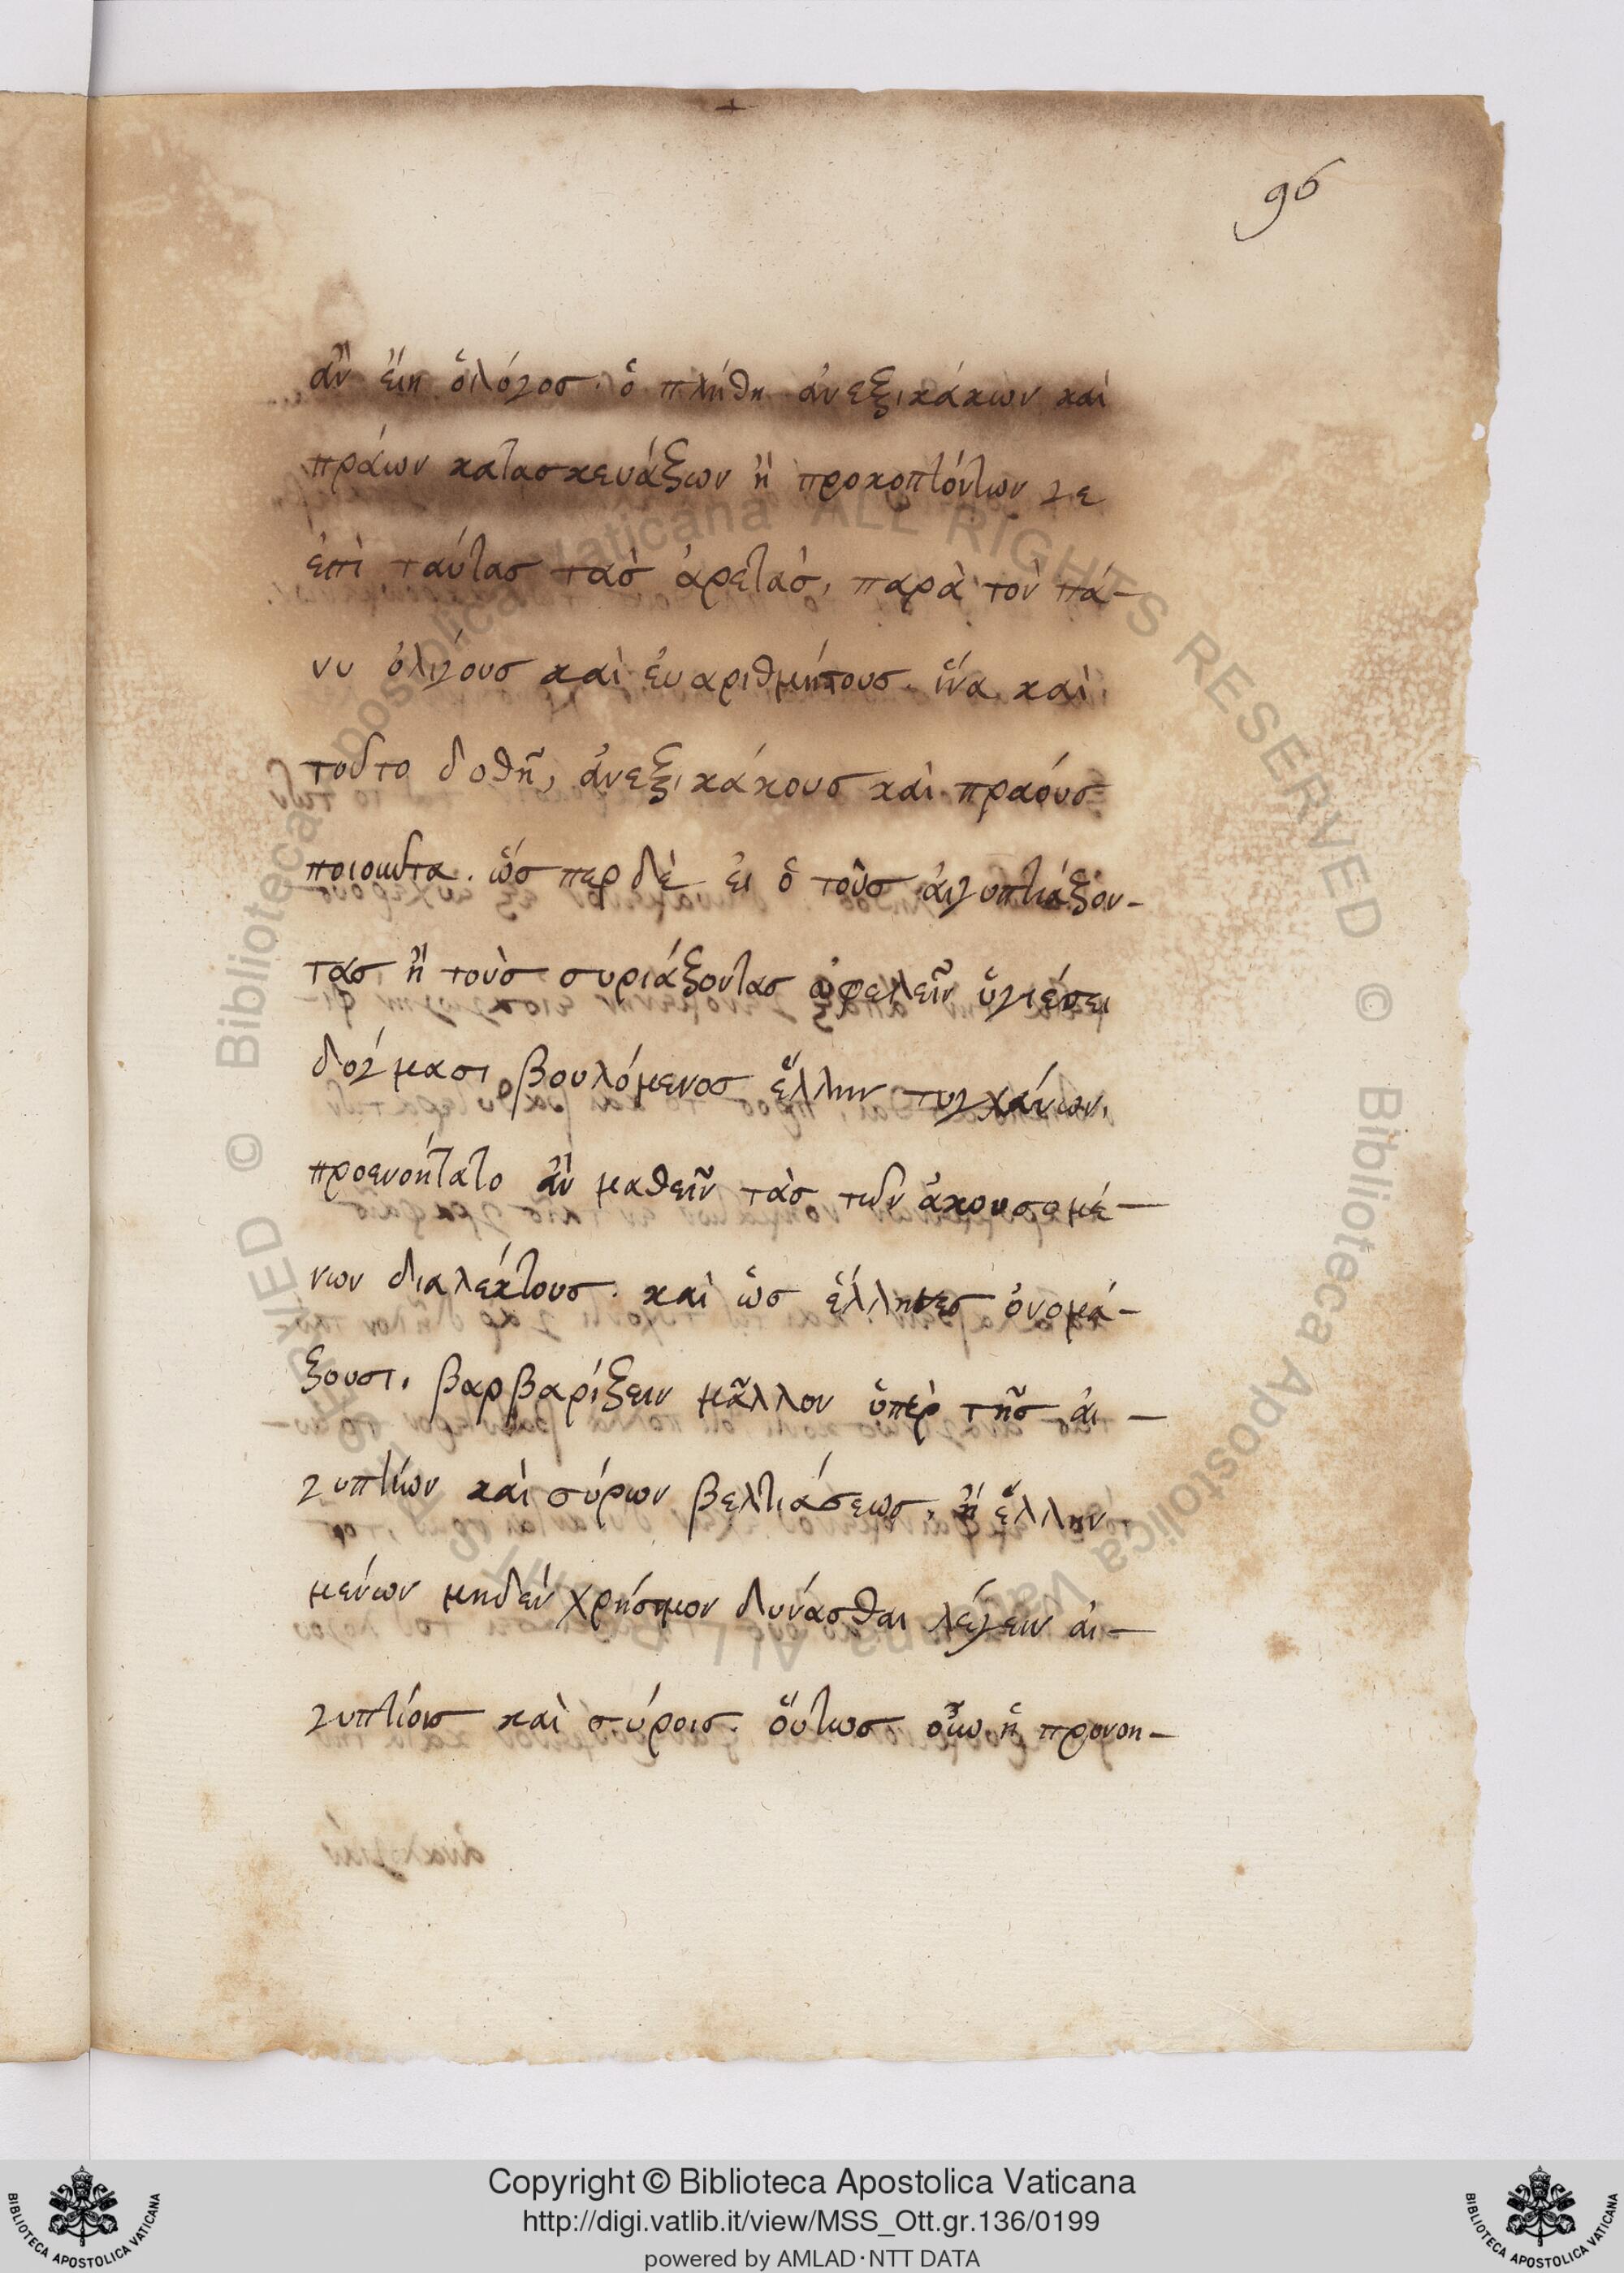 96
ἂν εἴη ὁ λόγοσ. ὁ πλήθη ἀνεξικάκων καὶ
πράων κατασκευάζων ἢ προκοπτόντων γε
ἐπὶ ταύτασ τὰσ ἀρετὰσ, παρὰ τὸν πά-
νυ ὀλίγουσ καὶ ἐυαριθμήτουσ. ἵνα καὶ
τοῦτο δοθῆ, ἀνεξικάκουσ καὶ πραόυσ
ποιοῦντα. ὥσπερ δὲ ἐι ὁ τοῦσ ἀιγυπτιάζον-
τασ ἢ τοὺσ συριάζοντασ ὠφελεῖν ὑγιέσει
δόγμασι βουλόμενοσ ἕλλην τυγχάνων,
προενοήτατο ἂν μαθεῖν τὰσ τῶν ἀκουσομέ-
νων διαλέκτουσ. καὶ ὡσ ἕλληνεσ ὀνομά-
ζουσι, βαρβαρίζειν μᾶλλον ὑπὲρ τῆσ ἀι-
γυπτίων καὶ σύρων βελτιάσεωσ, ἢ ἕλλην
μένων μηδὲν χρήσιμον δύνασθαι λέγειν ἀι-
γυπτίοισ καὶ σύροισ. ὅυτωσ ἡ προνοη-
Copyright © Biblioteca Apostolica Vaticana
http://digi.vatlib.it/view/MSS_Ott.gr.136/0199
powered by AMLAD·NTT DATA
BIBLIOTECA APOSTOLICA VATICANA
BIBLIOTECA APOSTOLICA VATICANA